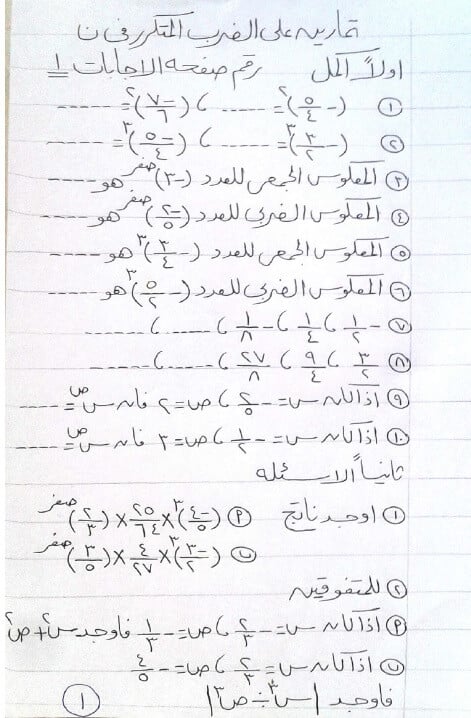 تمارين على الضرب المتكرر فى ن
اولاً اكمل رقم صفحه الاجابات ١
١ (-٥/٤)^٢ = ------ ، (-٧/٦)^٢ = ------
٢ (-٣/٢)^٣ = ------ ، (-٥/٤)^٣ = ------
٣ المعكوس الجمعى للعدد (-٣)^صفر هو -----
٤ المعكوس الضربى للعدد (-٢/٥)^صفر هو -----
٥ المعكوس الجمعى للعدد (-٣/٤)^٣ هو -----
٦ المعكوس الضربى للعدد (-٥/٢)^٣ هو -----
٧ -١/٢ ، ١/٤ ، -١/٨ ، ------ ، ------
٨ ٣/٢ ، ٩/٤ ، ٢٧/٨ ، ------ ، ------
٩ اذا كان س = -٢/٥ ، ص = ٢ فان س^ص = ----
١٠ اذا كان س = -١/٢ ، ص = ٣ فان س^ص = ----
ثانياً الاسئله
١ اوجد ناتج أ (-٤/٥)^٣ × ٢٥/٦٤ × (٢/٣)^صفر
ب (-٣/٢)^٣ × ٤/٢٧ × (٣/٥)^صفر
٢ للمتفوقين
أ اذا كان س = -٢/٣ ، ص = -١/٣ فاوجد س^٢ + ص^٢
ب اذا كان س = -٢/٣ ، ص = -٤/٥
فاوجد |س^٣ ÷ ص^٣|
١